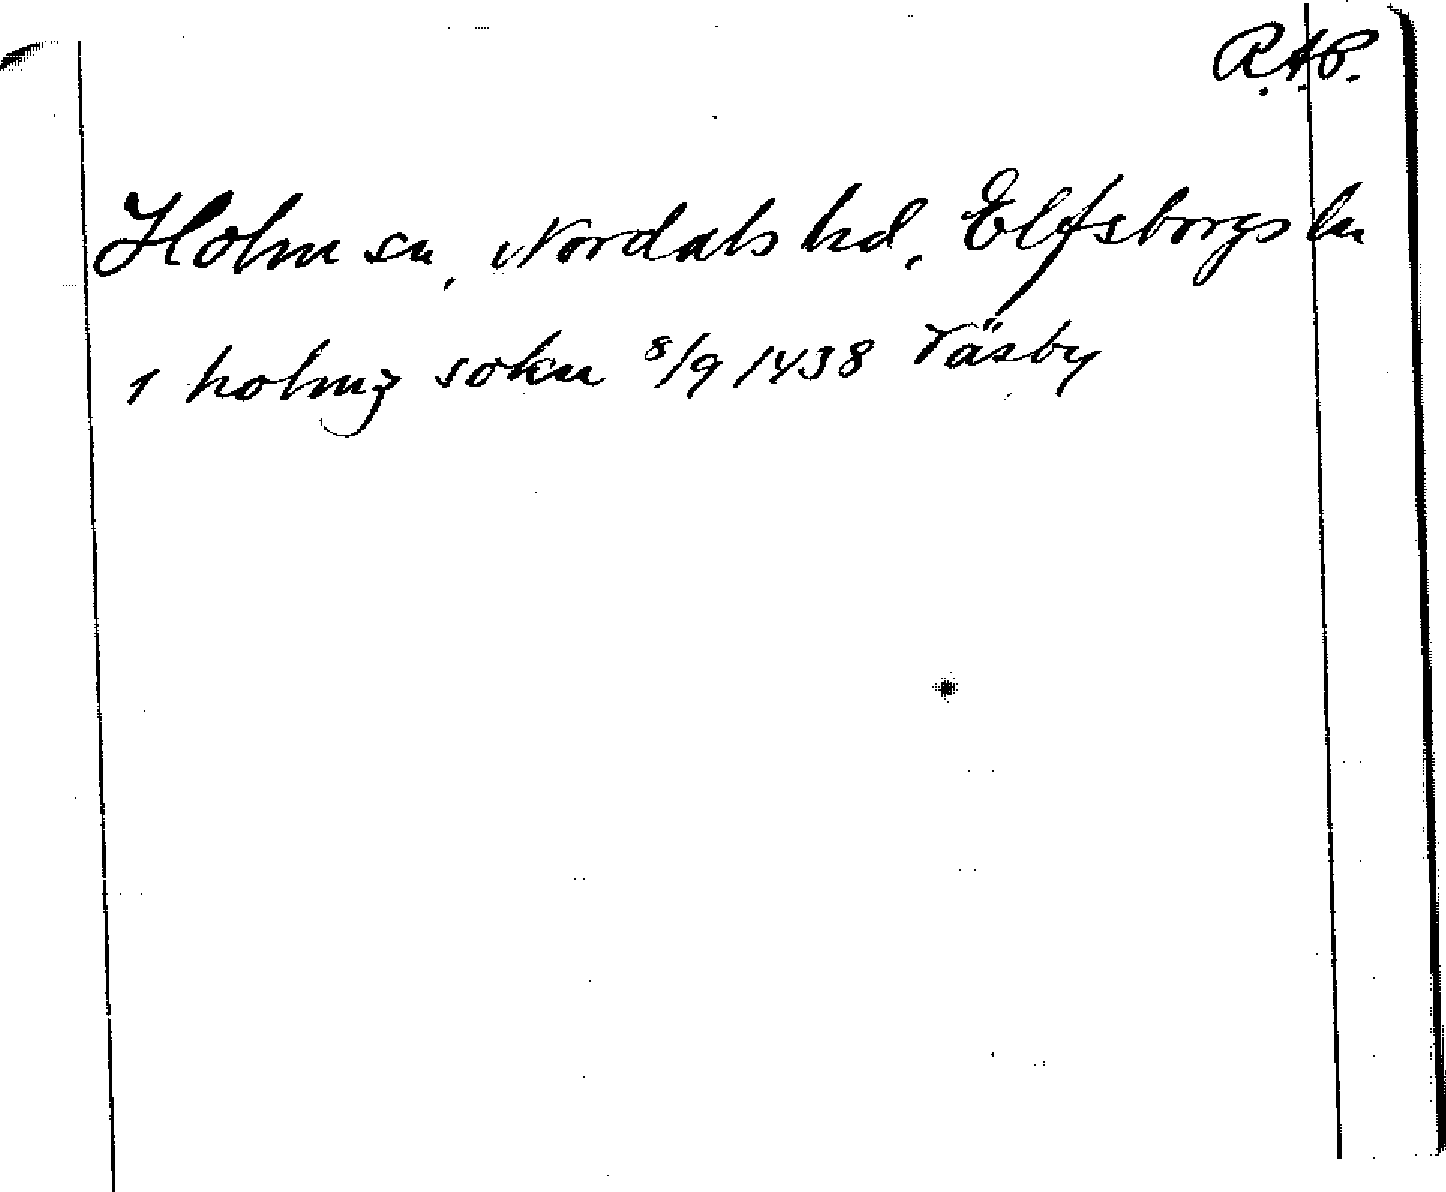 R.A.P.
Holm sn, Nordals hd, Elfsborgs ln
1 holmz sokn 8/9 1438 Väsby